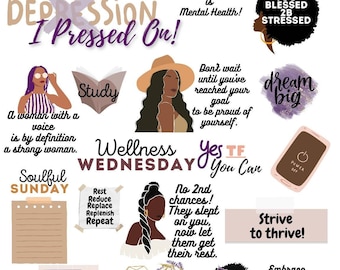 DEPRESSION
I Pressed On!
is
Mental Health!
BLESSED
2B
STRESSED
Study
Don't wait
until you've
reached your
goal
to be proud of
yourself.
dream
big
A woman with a
voice
is by definition
a strong woman.
Wellness
WEDNESDAY
Yes TF
You Can
POWER
OFF
Soulful
SUNDAY
Rest
Reduce
Replace
Replenish
Repeat
No 2nd
chances!
They slept
on you,
now let
them get
their rest.
Strive
to thrive!
Embrace